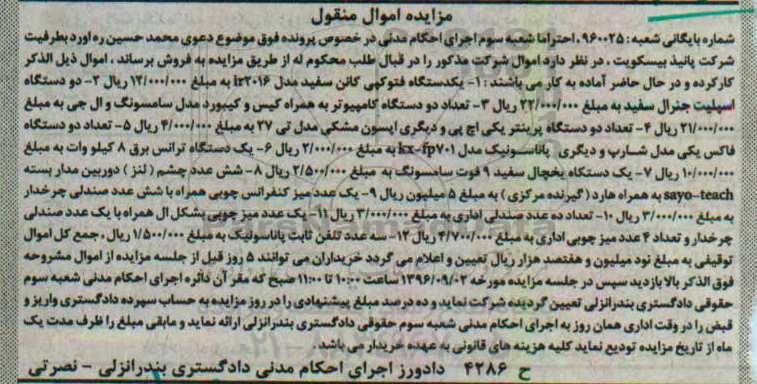 مزایده اموال منقول
شماره بایگانی شعبه: ۹۶۰۰۲۵ ، احتراما شعبه سوم اجرای احکام مدنی در خصوص پرونده فوق موضوع دعوی محمد حسین ره اورد بطرفیت
شرکت پانیذ بیسکویت ، در نظر دارد اموال شرکت مذکور را در قبال طلب محکوم له از طریق مزایده به فروش برساند ، اموال ذیل الذکر
کارکرده و در حال حاضر آماده به کار می باشند : ۱- یکدستگاه فتوکپی کانن سفید مدل ir۲۰۱۶ به مبلغ ۱۲/۰۰۰/۰۰۰ ریال ۲- دو دستگاه
اسپلیت جنرال سفید به مبلغ ۲۲/۰۰۰/۰۰۰ ریال ۳- تعداد دو دستگاه کامپیوتر به همراه کیس و کیبورد مدل سامسونگ و ال جی به مبلغ
۲۱/۰۰۰/۰۰۰ ریال ۴- تعداد دو دستگاه پرینتر یکی اچ پی و دیگری اپسون مشکی مدل تی ۲۷ به مبلغ ۴/۰۰۰/۰۰۰ ریال ۵- تعداد دو دستگاه
فاکس یکی مدل شارپ و دیگری پاناسونیک مدل kx-fp۷۰۱ به مبلغ ۲/۰۰۰/۰۰۰ ریال ۶- یک دستگاه ترانس برق ۸ کیلو وات به مبلغ
۱۰/۰۰۰/۰۰۰ ریال ۷- یک دستگاه یخچال سفید ۹ فوت سامسونگ به مبلغ ۲/۵۰۰/۰۰۰ ریال ۸- شش عدد چشم ( لنز ) دوربین مدار بسته
sayo-teach به همراه هارد ( گیرنده مرکزی ) به مبلغ ۵ میلیون ریال ۹- یک عدد میز کنفرانس چوبی همراه با شش عدد صندلی چرخدار
به مبلغ ۳/۰۰۰/۰۰۰ ریال ۱۰- تعداد ده عدد صندلی اداری به مبلغ ۳/۰۰۰/۰۰۰ ریال ۱۱- یک عدد میز چوبی بشکل ال همراه با یک عدد صندلی
چرخدار و تعداد ۴ عدد میز چوبی اداری به مبلغ ۴/۷۰۰/۰۰۰ ریال ۱۲- سه عدد تلفن ثابت پاناسونیک به مبلغ ۱/۵۰۰/۰۰۰ ریال ، جمع کل اموال
توقیفی به مبلغ نود میلیون و هفتصد هزار ریال تعیین و اعلام می گردد خریداران می توانند ۵ روز قبل از جلسه مزایده از اموال مشروحه
فوق الذکر بالا بازدید سپس در جلسه مزایده مورخه ۱۳۹۶/۰۹/۰۲ ساعت ۱۰:۰۰ تا ۱۱:۰۰ صبح که مقر آن دائره اجرای احکام مدنی شعبه سوم
حقوقی دادگستری بندرانزلی تعیین گردیده شرکت نماید و ده درصد مبلغ پیشنهادی را در روز مزایده به حساب سپرده دادگستری واریز و
قبض را در وقت اداری همان روز به اجرای احکام مدنی شعبه سوم حقوقی دادگستری بندرانزلی ارائه نماید و مابقی مبلغ را ظرف مدت یک
ماه از تاریخ مزایده تودیع نماید کلیه هزینه های قانونی به عهده خریدار می باشد
ح ۴۲۸۶ دادورز اجرای احکام مدنی دادگستری بندرانزلی - نصرتی